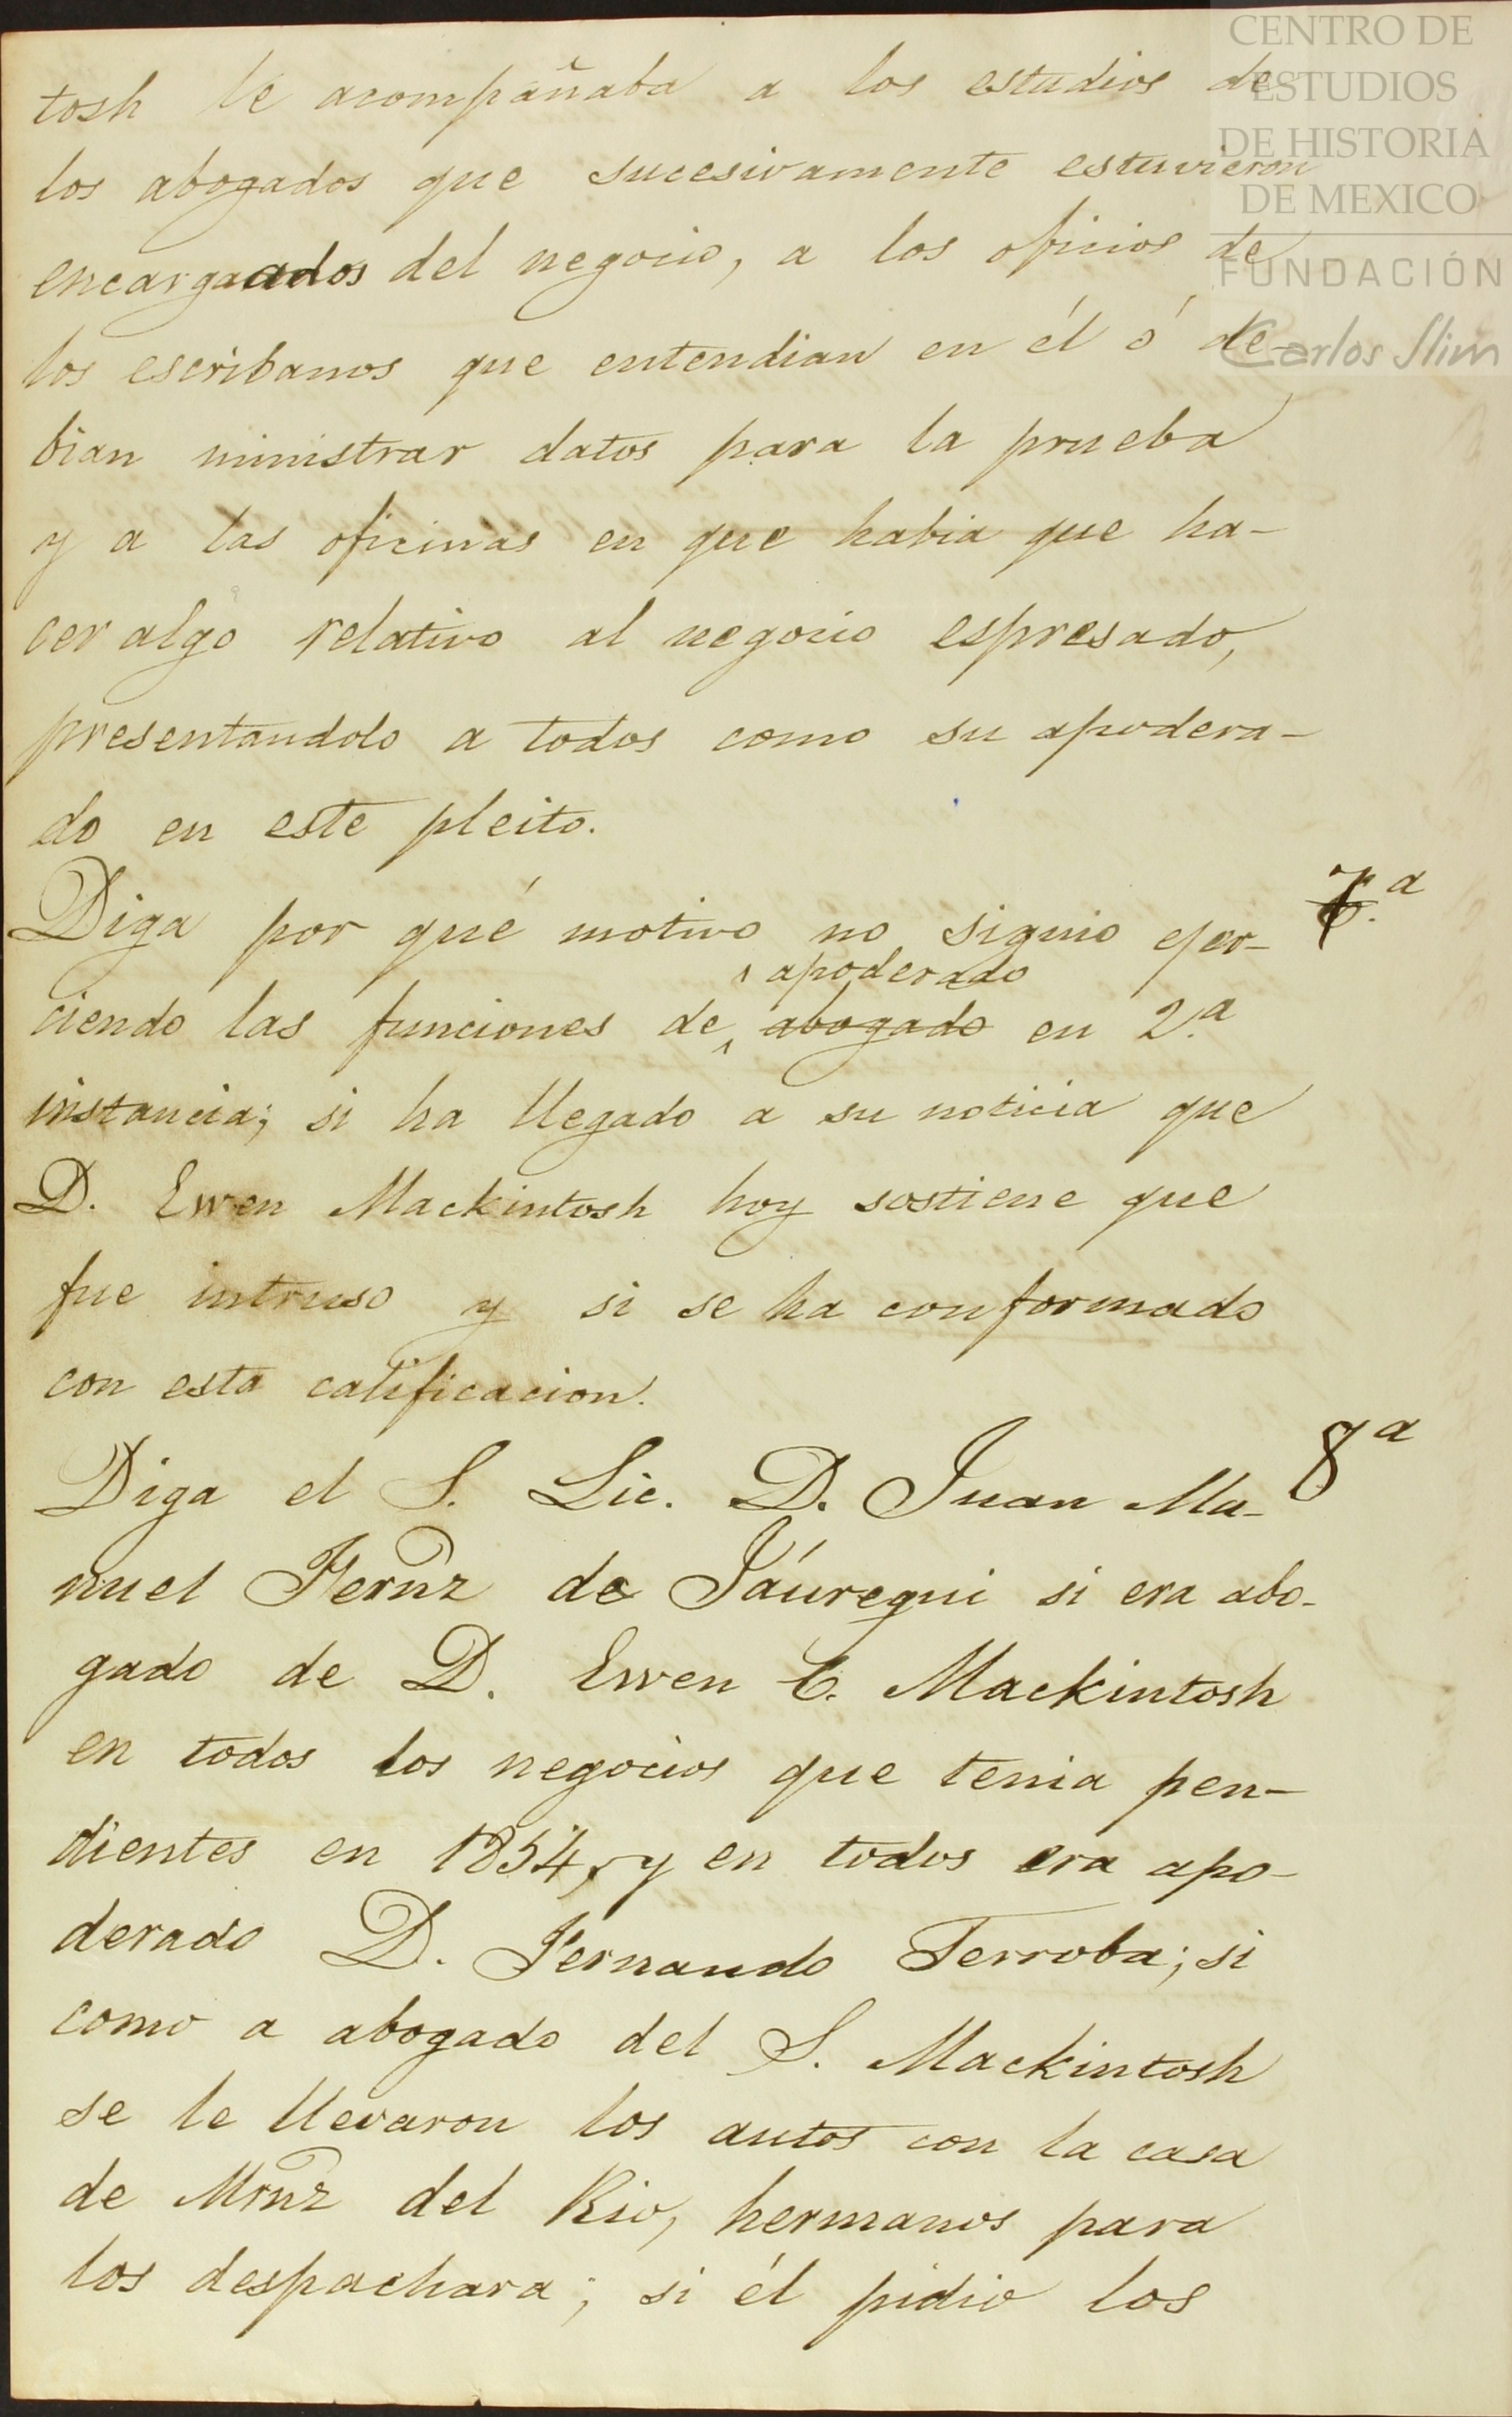 CENTRO DE
ESTUDIOS
DE HISTORIA
DE MEXICO
FUNDACIÓN
Carlos Slim
tosh le acompañaba a los estudios de
los abogados que sucesivamente estuvieron
encargados del negocio, a los oficios de
los escribanos que entendian en él ó de-
bian ministrar datos para la prueba
y a las oficinas en que habia que ha-
cer algo relativo al negocio espresado,
presentandolo a todos como su apodera-
do en este pleito.
Diga por qué motivo no siguio ejer- 7.ª
apoderado
ciendo las funciones de abogado en 2.ª
instancia; si ha llegado a su noticia que
D. Ewen Mackintosh hoy sostiene que
fue intruso y si se ha conformado
con esta calificacion.
Diga el S. Lic. D. Juan Ma- 8ª
nuel Fernz de Jáuregui si era abo-
gado de D. Ewen C. Mackintosh
en todos los negocios que tenia pen-
dientes en 1854, y en todos era apo-
derado D. Fernando Terroba; si
como a abogado del S. Mackintosh
se le llevaron los autos con la casa
de Mrnz del Rio, hermanos para
los despachara; si él pidio los